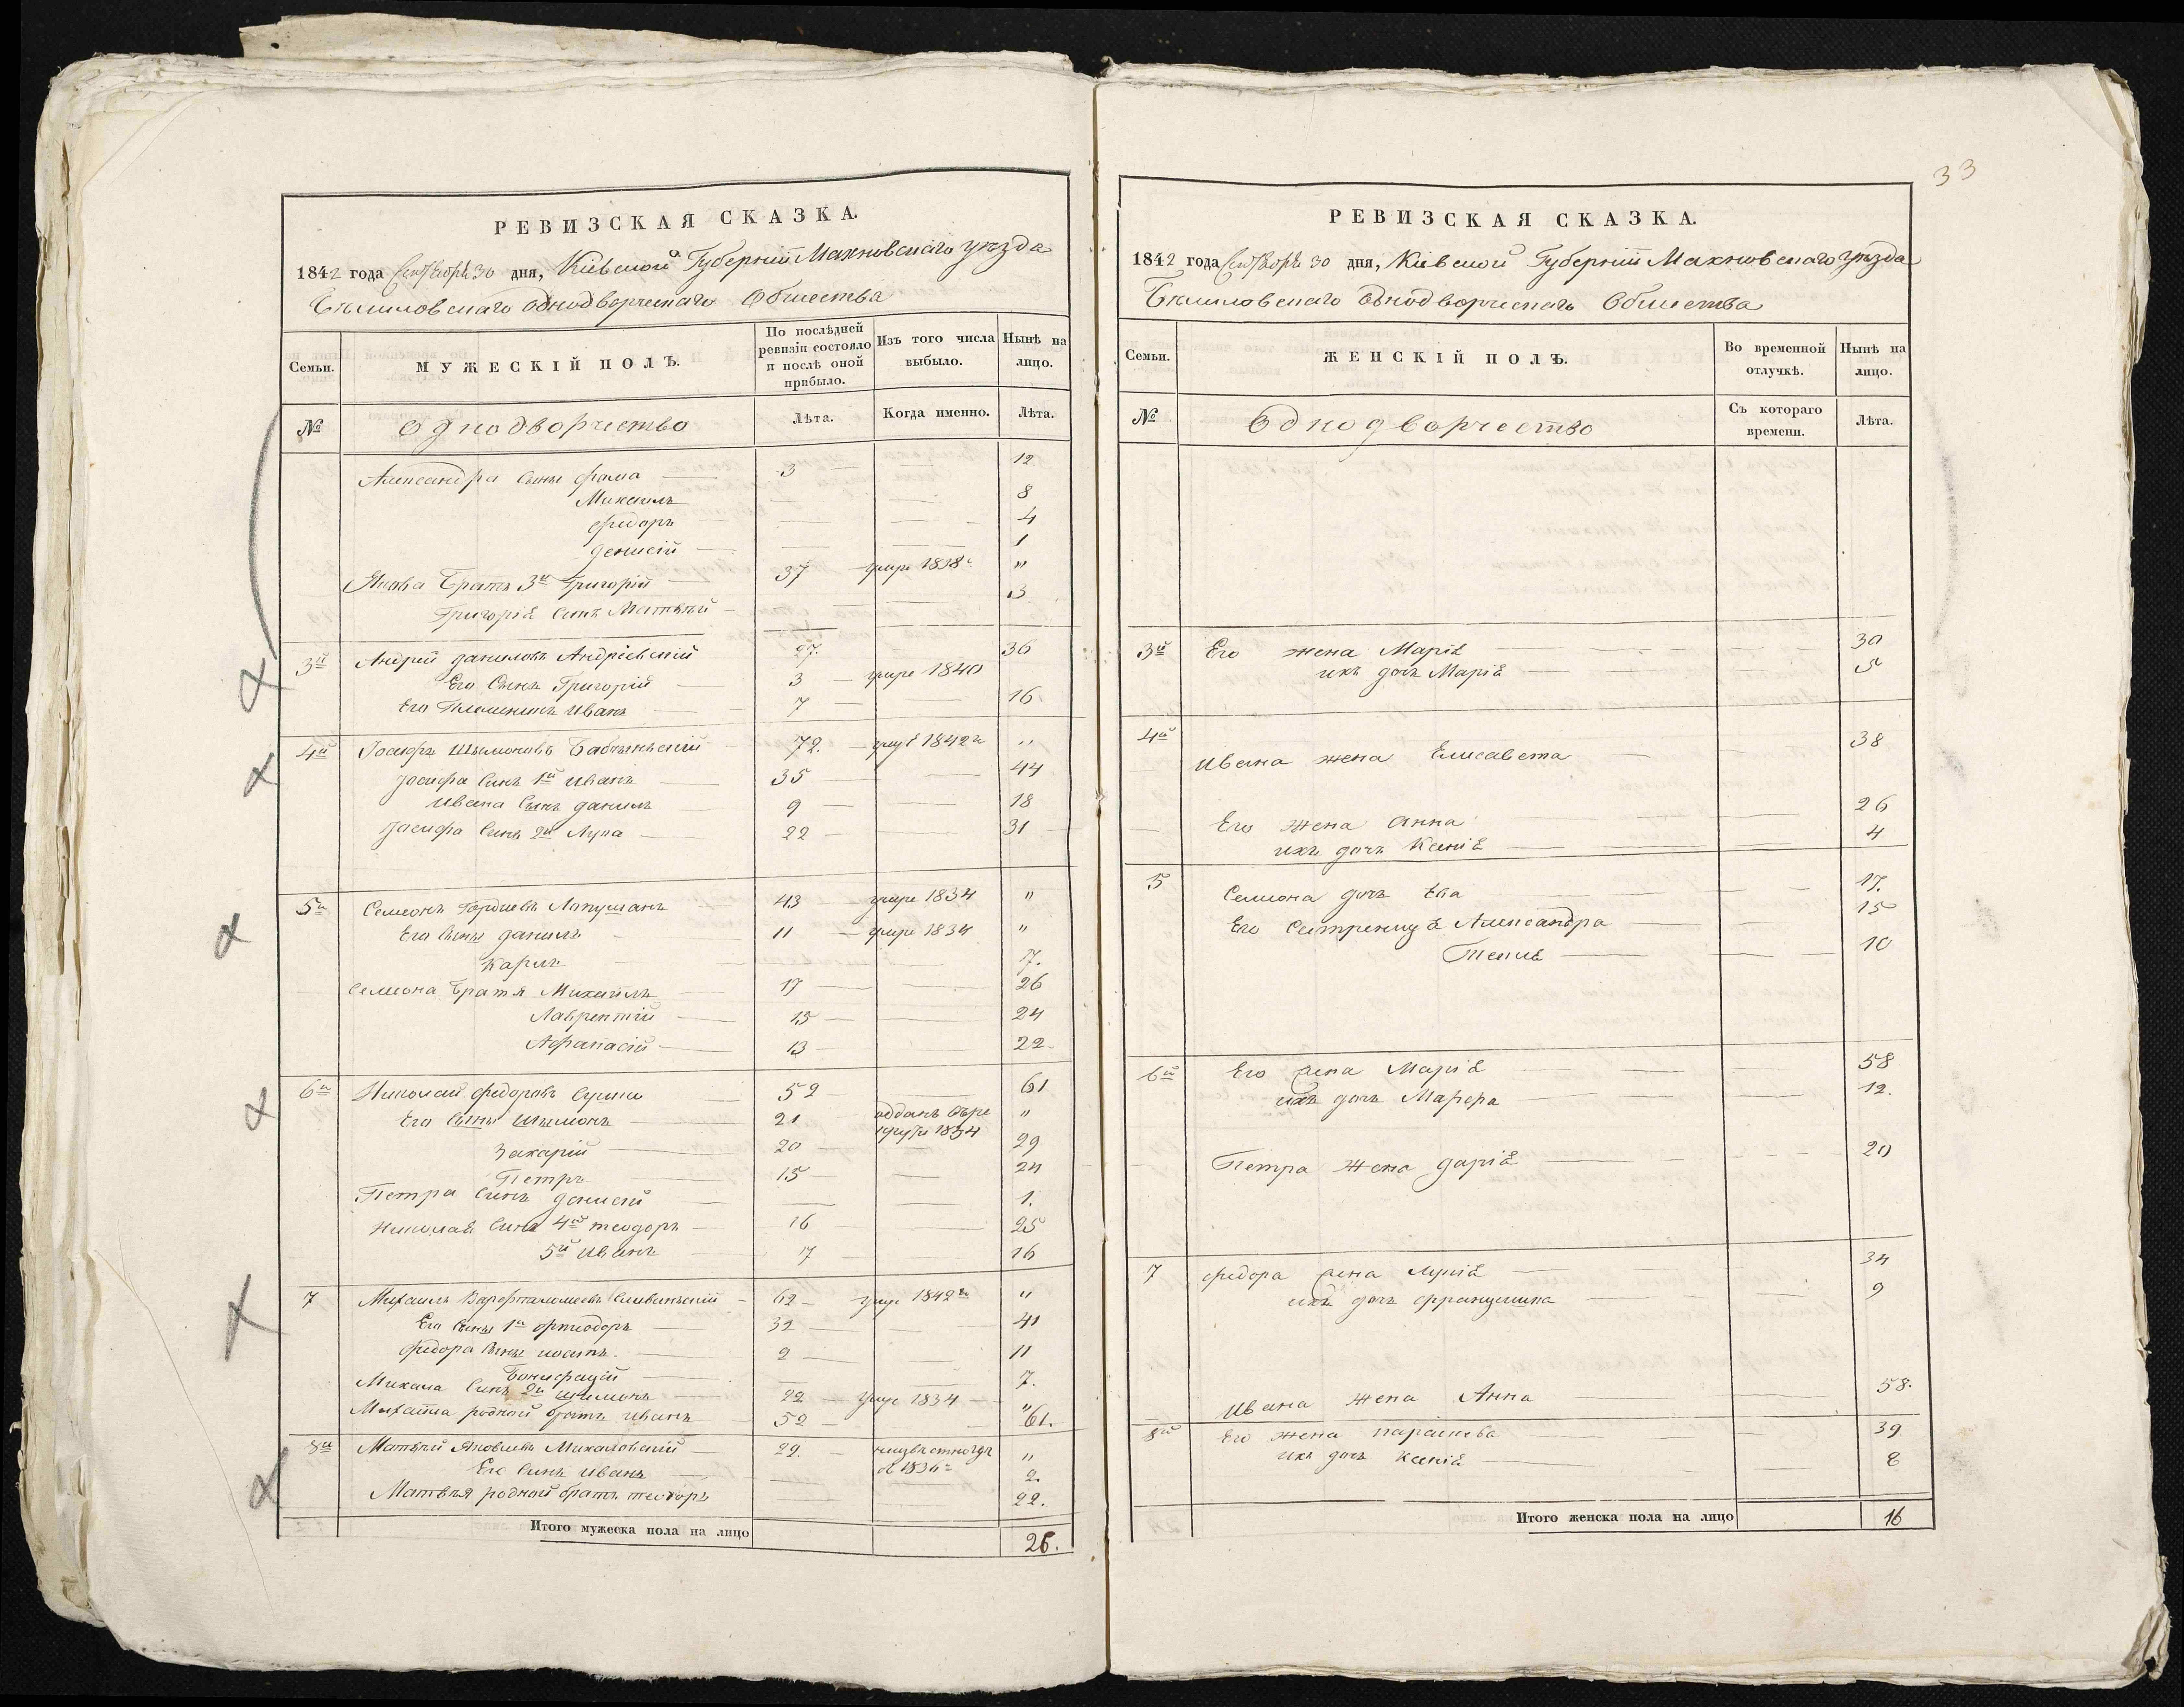 РЕВИЗСКАЯ СКАЗКА.
1842 года Сентября 30 дня, Кіевской Губерніи Махновскаго уѣзда
Бѣлиловскаго однодворческаго Общества
Семьи. МУЖЕСКІЙ ПОЛЪ. По послѣдней ревизіи состояло и послѣ оной прибыло. Изъ того числа выбыло. Нынѣ на лицо.
№ однодворчество Лѣта. Когда именно. Лѣта.
Александра сыны фома 3 12
Михаилъ 8
федоръ 4
денисій 1
Якова Братъ 3й Григорій 37 умре 1838 "
Григорія сынъ Матвѣй 3
3й Андрей даниловъ Андріевскій 27. 36
Его Сынъ Григорій 3 умре 1840
Его Племеникъ Иванъ 7 16
4й Іосифъ Шымоновъ 72. 1842 "
Іосифа Сынъ 1й Иванъ 35 44
Ивана Сынъ данилъ 9 18
Іосифа Сынъ 2й Лука 22 31
5й Семіонъ Гордиевъ Лопушанъ 43 умре 1834 "
Его Сыны данилъ 11 умре 1834 "
Карлъ 17.
Семіона Братья Михаилъ 17 26
Лаврентій 15 24
Афанасій 13 22
6й Николай федоровъ 52 61
Его Сыны Шымонъ 21 отданъ въ рекруты 1834 "
Захарій 20 29
Петръ 15 24
Петра Сынъ денисій 1.
Николая Сынъ 4й теодоръ 16 25
5й Иванъ 7 16
7 Михаилъ Варфоломеевъ 62 умре 1842 "
Его Сыны 1й фтіодоръ 32 41
Федора Сыны 2 11
Бонифацій 7.
Михаила Сынъ 2й Шимонъ 22 умре 1834 "
Михаила родной братъ Иванъ 52 61.
8й Матвѣй Яковлевъ Михаловскій 22. неизвѣстно гдѣ съ 1836 "
Его Сынъ Иванъ 2.
Матвѣя родной братъ теодоръ 22.
Итого мужеска пола на лицо 26.
33
РЕВИЗСКАЯ СКАЗКА.
1842 года Сентября 30 дня, Кіевской Губерніи Махновскаго уѣзда
Бѣлиловскаго однодворческаго Общества
Семьи. ЖЕНСКІЙ ПОЛЪ. Во временной отлучкѣ. Нынѣ на лицо.
№ Однодворчество Съ котораго времени. Лѣта.
3й Его жена Марія 30
ихъ дочь Марія 5
4й Ивана жена Елисавета 38
Его жена Анна 26
ихъ дочь Ксенія 4
5 Семіона дочь Ева 17.
Его Сестреница Александра 15
Текля 10
6й Его жена Марія 58
ихъ дочь Марфра 12.
Петра жена дарія 20
7 федора жена Луція 34
ихъ дочь францишка 9
Ивана жена Анна 58.
8й Его жена параскева 39
ихъ дочь Ксенія 8
Итого женска пола на лицо 16